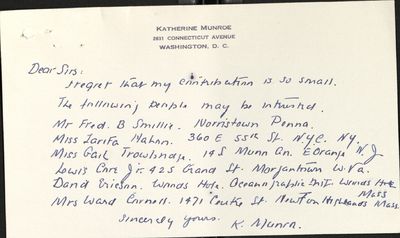 KATHERINE MUNROE
2831 CONNECTICUT AVENUE
WASHINGTON, D. C.
Dear Sirs:
I regret that my contribution is so small.
The following people may be intrested.
Mr Fred. B Smillie. Norristown Penna.
Miss Hahnn. 360 E 55th St. N.Y.C. N.Y.
Miss Gail Trowbridge. 145 Munn An. E Orange N.J
Lewis Core Jr. 425 Grand St. Morgantown W.Va.
David Ericson. Woods Hole. Oceanographic Inst. Woods Hole Mass
Mrs Ward Cornell. 1471 St. Newton Highlands Mass.
Sincerely yours.
K. Munroe